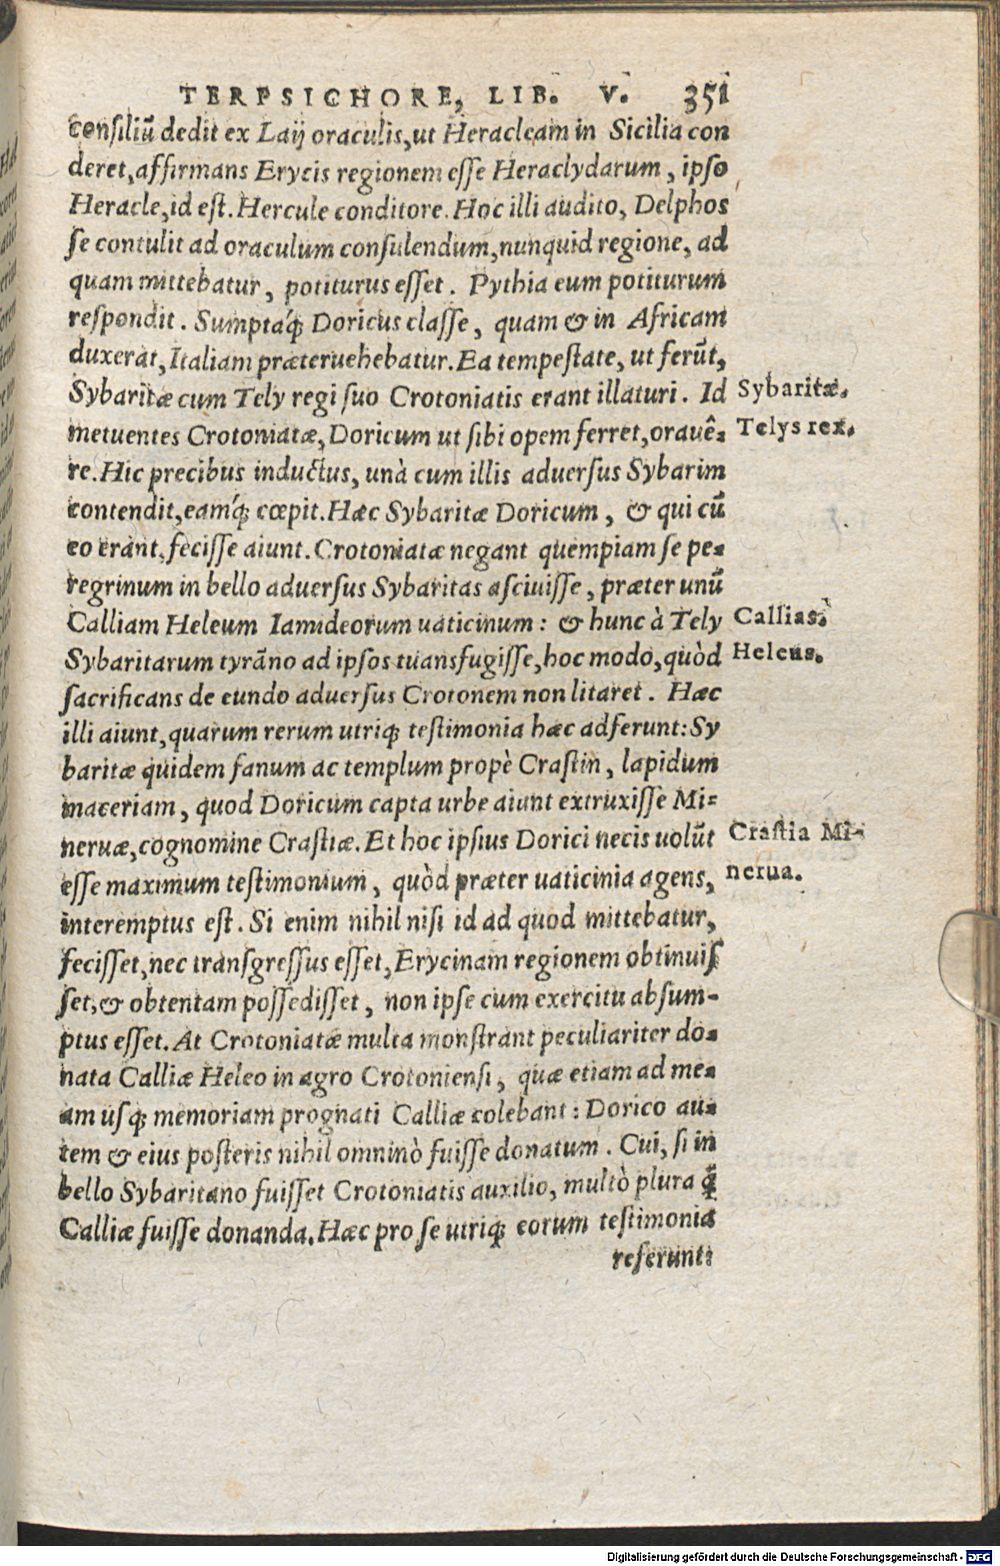 TERPSICHORE, LIB. V. 351
consiliũ dedit ex Laij oraculis, ut Heracleam in Sicilia con
deret, affirmans Erycis regionem esse Heraclydarum, ipso
Heracle, id est. Hercule conditore. Hoc illi audito, Delphos
se contulit ad oraculum consulendum, nunquid regione, ad
quam mittebatur, potiturus esset. Pythia eum potiturum
respondit. Sumptaq́; Doricus classe, quam & in Africam
duxerat, Italiam præteruehebatur. Ea tempestate, ut ferũt,
Sybaritæ cum Tely regi suo Crotoniatis erant illaturi. Id
Sybaritæ.
metuentes Crotoniatæ, Doricum ut sibi opem ferret, orauê-
Telys rex.
re. Hic precibus inductus, unà cum illis aduersus Sybarim
contendit, eamq́; cœpit. Hæc Sybaritæ Doricum, & qui cũ
eo erant, fecisse aiunt. Crotoniatæ negant quempiam se pe-
regrinum in bello aduersus Sybaritas asciuisse, præter unũ
Calliam Heleum Iamideorum uaticinum: & hunc à Tely
Callias.
Sybaritarum tyrãno ad ipsos tuansfugisse, hoc modo, quòd
Heleus.
sacrificans de eundo aduersus Crotonem non litaret. Hæc
illi aiunt, quarum rerum utriq; testimonia hæc adferunt: Sy
baritæ quidem fanum ac templum propè Crastin, lapidum
maceriam, quod Doricum capta urbe aiunt extruxisse Mi-
neruæ, cognomine Crastiæ. Et hoc ipsius Dorici necis uolũt
Crastia Mi-
esse maximum testimonium, quòd præter uaticinia agens,
nerua.
interemptus est. Si enim nihil nisi id ad quod mittebatur,
fecisset, nec transgressus esset, Erycinam regionem obtinuis
set, & obtentam possedisset, non ipse cum exercitu absum-
ptus esset. At Crotoniatæ multa monstrant peculiariter do-
nata Calliæ Heleo in agro Crotoniensi, quæ etiam ad me-
am usq; memoriam prognati Calliæ colebant: Dorico au-
tem & eius posteris nihil omninò fuisse donatum. Cui, si in
bello Sybaritano fuisset Crotoniatis auxilio, multò plura q̃
Calliæ fuisse donanda. Hæc pro se utriq; eorum testimonia
referunt:
Digitalisierung gefördert durch die Deutsche Forschungsgemeinschaft - DFG